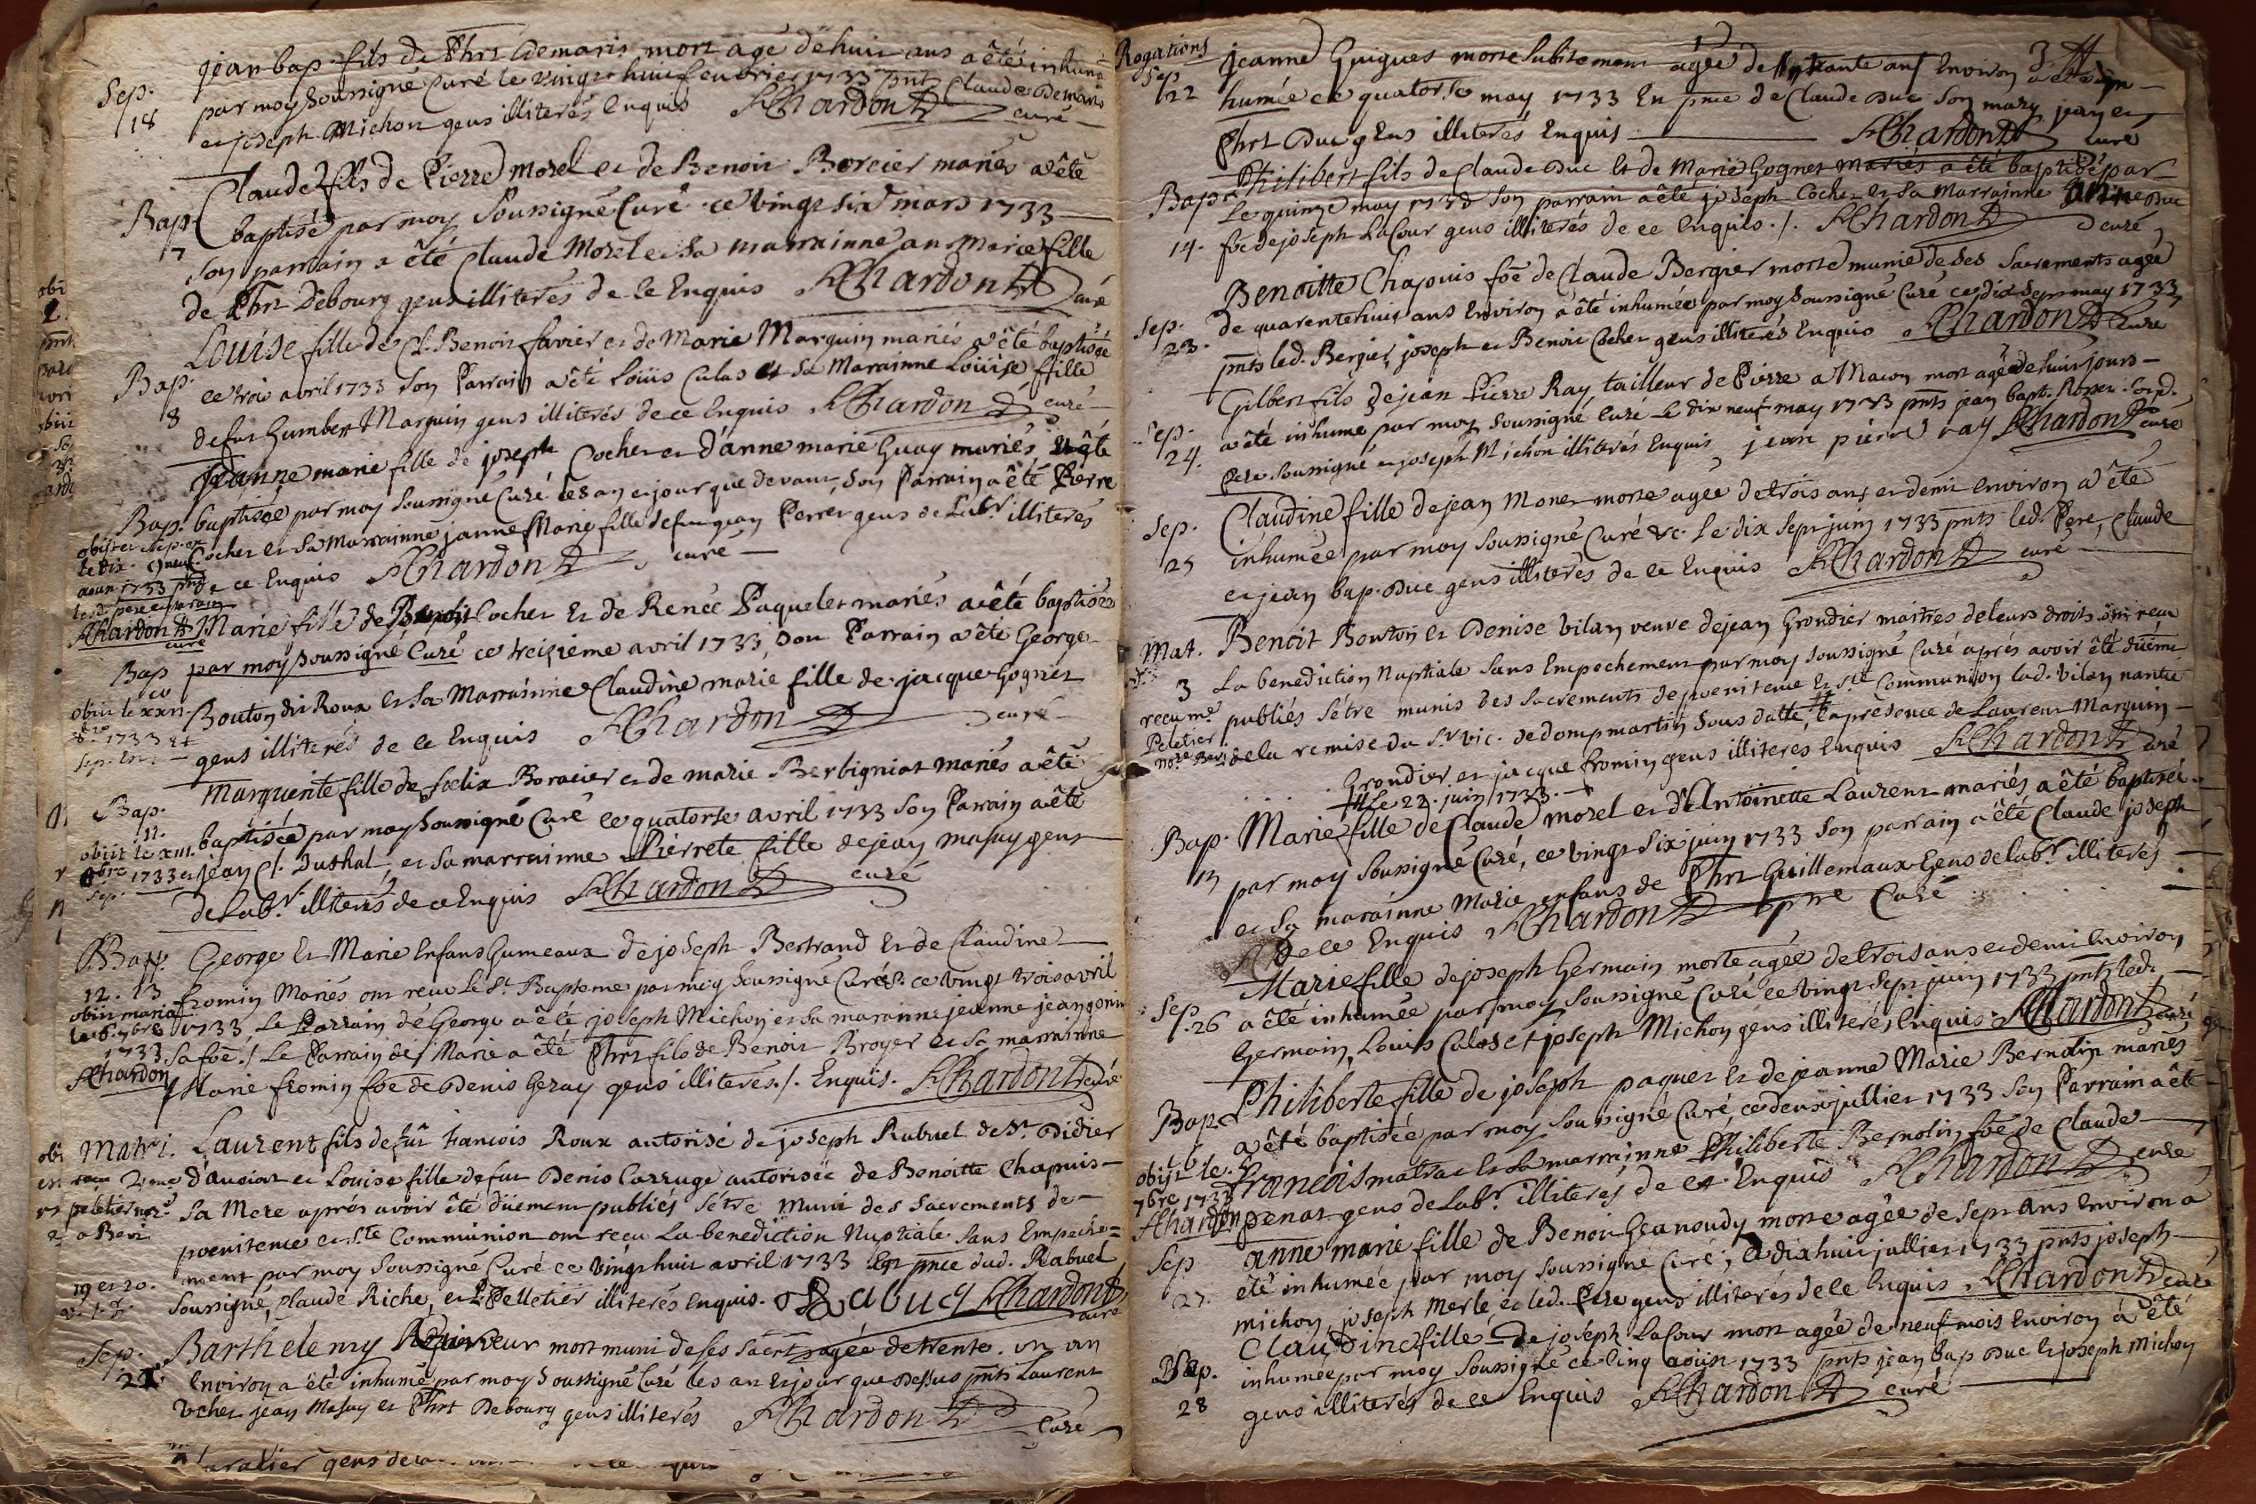 Sep.
18
jean bap. fils de Phrt Demaris mort agé de huit ans a êté inhumé
par moy soussigné Curé le vingt huit feuvrier 1733 pnt Claude Demaris
et joseph Michon gens illiterés Enquis AChardon curé
Bap.
17
Claude fils de Pierre Morel et de Benoit Borcier mariés a êté
baptisé par moy soussigné Curé ce vingt six mars 1733
son parrain a êté Claude Morel et sa marrainne an. Marie fille
de Phrt Debourg gens illiterés de ce Enquis AChardon curé
Bap.
8
Louise fille de Cl. Benoit favier et de Marie Marguin mariés a êté baptisée
ce trois avril 1733 son Parrain a êté Loüis Culas et sa Marrainne Loüise fille
defut Humbert Marguin gens illiterés de ce Enquis AChardon curé
Bap.
Jeanne marie fille de joseph Cocher et d'anne marie Guay mariés a êté
baptisée par moy soussigné Curé les an et jour que devant, son Parrain a êté Pierre
Cocher et sa Marrainne janne Marie fille defut jean Perret gens de Labr. illiterés
de ce Enquis AChardon curé
obiit et sep. est
le dix et neuf
aoust 1733 pnts
led. pere et parain
AChardon
curé
Bap
10
Marie fille de Benoit Cocher et de Renée Paquelet mariés a êté baptisée
par moy soussigné Curé ce treizieme avril 1733, son Parrain a êté George
Bouton dit Roux et sa Marrainne Claudine marie fille de jacque Gognet
gens illiterés de ce Enquis AChardon curé
obiit le xxii
1733 et
sep. est
Bap.
11.
Marguerite fille de foelix Boracier et de marie Berbigniat mariés a êté
baptisée par moy soussigné Curé ce quatorse avril 1733 son Parrain a êté
jean Cl. Duthal, et sa marrainne Pierrete fille de jean masuy gens
de Labr. illiterés de ce Enquis AChardon curé
obiit le xiii
9bre 1733 et
sep.
Bap.
12. 13
George et Marie Enfans Gumeaux de joseph Bertrand et de Claudine
fromin Mariés ont reçu le St. Bapteme par moy soussigné Curé ce vingt trois avril
1733 Le Parrain de George a êté joseph Michon et sa maranne jeanne jeangonin
sa foe. /. Le Parrain de Marie a êté Phrt fils de Benoit Broyer et sa marrainne
Marie fromin foe de Denis Geray gens illiterés. /. Enquis. AChardon curé
obiit maria
le 6. 7bre
1733
AChardon
Matri.
2me
pelétier nore
a Beri
19 et 20.
Laurent fils de fût francois Roux autorisé de joseph Rabuel de St. Didier
d'Aussiat et Louise fille defut Denis Carruge autorisée de Benoitte Chapuis
sa Mere aprés avoir êté dûement publiés s'être Muni des sacrements de
poenitence et Ste Communion ont reçu La benediction Nuptiale sans Empeche=
ment par moy soussigné Curé ce vingt huit avril 1733 En pnce dud. Rabuel
soussigné, Claude Riche, et Pelletier illiterés Enquis. Rabuel AChardon
curé
Sep.
21.
Barthelemy mort muni de ses sacrts agée de trente. un an
Environ a êté inhumé par moy soussigné Curé les an et jour que dessus pnts Laurent
Vcher jean Masuy et Phrt Debourg gens illiterés AChardon Curé
Rogations
3.
Sep
22
jeanne Guigues morte subitement agée de septante ans Environ a êté in-
humée ce quatorse may 1733 En pnce de Claude Duc son mary jean et
Phrt Duc gens illiterés Enquis AChardon curé
Bap.
14.
Philibert fils de Claude Duc et de Marie Gognet mariés a êté baptisé par
Le quinze may 1733 son parrain a êté joseph Cocher et sa Marrainne Anne Duc
foe de joseph Lacour gens illiterés de ce Enquis. /. AChardon curé
Sep.
23.
Benoitte Chapuis foe de Claude Bergier morte munie de ses sacrements agée
de quarente huit ans Environ a êté inhumée par moy soussigné Curé ce dix sept may 1733
pnts led. Bergier, joseph et Benoit Cocher gens illiterés Enquis AChardon Curé
Sep.
24.
Gilbert fils de jean Pierre Ray tailleur de Pierre a Macon mort agé de huit jours
a êté inhumé par moy soussigné Curé Le dix neuf may 1733 pnts jean bapt. led.
Pere soussigné et joseph Michon illiterés Enquis jean pierre ray AChardon curé
Sep.
25
Claudine fille de jean Monet morte agée de trois ans et demi Environ a êté
inhumée par moy soussigné Curé &c. Le dix sept juin 1733 pnts led. Pere, Claude
et jean bap. Duc gens illiterés de ce Enquis AChardon curé
Mat.
3
recu me
Peletier
nore. Beri
Benoit Bouton et Denise vilan veuve de jean Grondier maitres de leurs droits ont recu
La benediction Nuptiale sans Empechement par moy soussigné Curé aprés avoir êté düeme
publiés s'être munis des sacrements de poenitence et Ste Communion lad. vilan nantie
de la remise du Sr vic. de dompmartin sous datte En présence de Laurent Marguin
Grondier et jacque fromin gens illiterés Enquis AChardon Curé
Le 22. juin 1733.
Bap.
Marie fille de Claude Morel et d'Antoinette Laurent mariés a êté baptisée
par moy soussigné Curé, ce vingt six juin 1733 son parrain a êté Claude joseph
et sa marainne Marie enfans de Phrt Guillemaux gens de labr. illiterés
de ce Enquis AChardon pne Curé
Sep.
26
Marie fille de joseph Germain morte agée de trois ans et demi Environ
a êté inhumée par moy soussigné Curé ce vingt sept juin 1733 pnts led.
Germain, Louis Culas et joseph Michon gens illiterés Enquis AChardon curé
Bap.
Philiberte fille de joseph paquet et de jeanne Marie Bernolin mariés
a êté baptisée par moy soussigné Curé, ce deux jullier 1733 son Parrain a êté
francois matrac et sa marrainne Philiberte Bernolin foe de Claude
penat gens de Labr. illiterés de ce Enquis AChardon cure
obiit le
7bre 1733
AChardon
Sep
27.
anne marie fille de Benoit Geanoudy morte agée de sept ans Environ a
êté inhumée par moy soussigné Curé, ce dix huit jullier 1733 pnts joseph
michon, joseph Merle et led. Pere gens illiterés de ce Enquis AChardon curé
Sep.
28
Claudine fille de joseph Lacour mort agée de neuf mois Environ a êté
inhumée par moy soussigné ce Cinq aoüst 1733 pnts jean bap Duc et joseph Michon
gens illiterés de ce Enquis AChardon curé